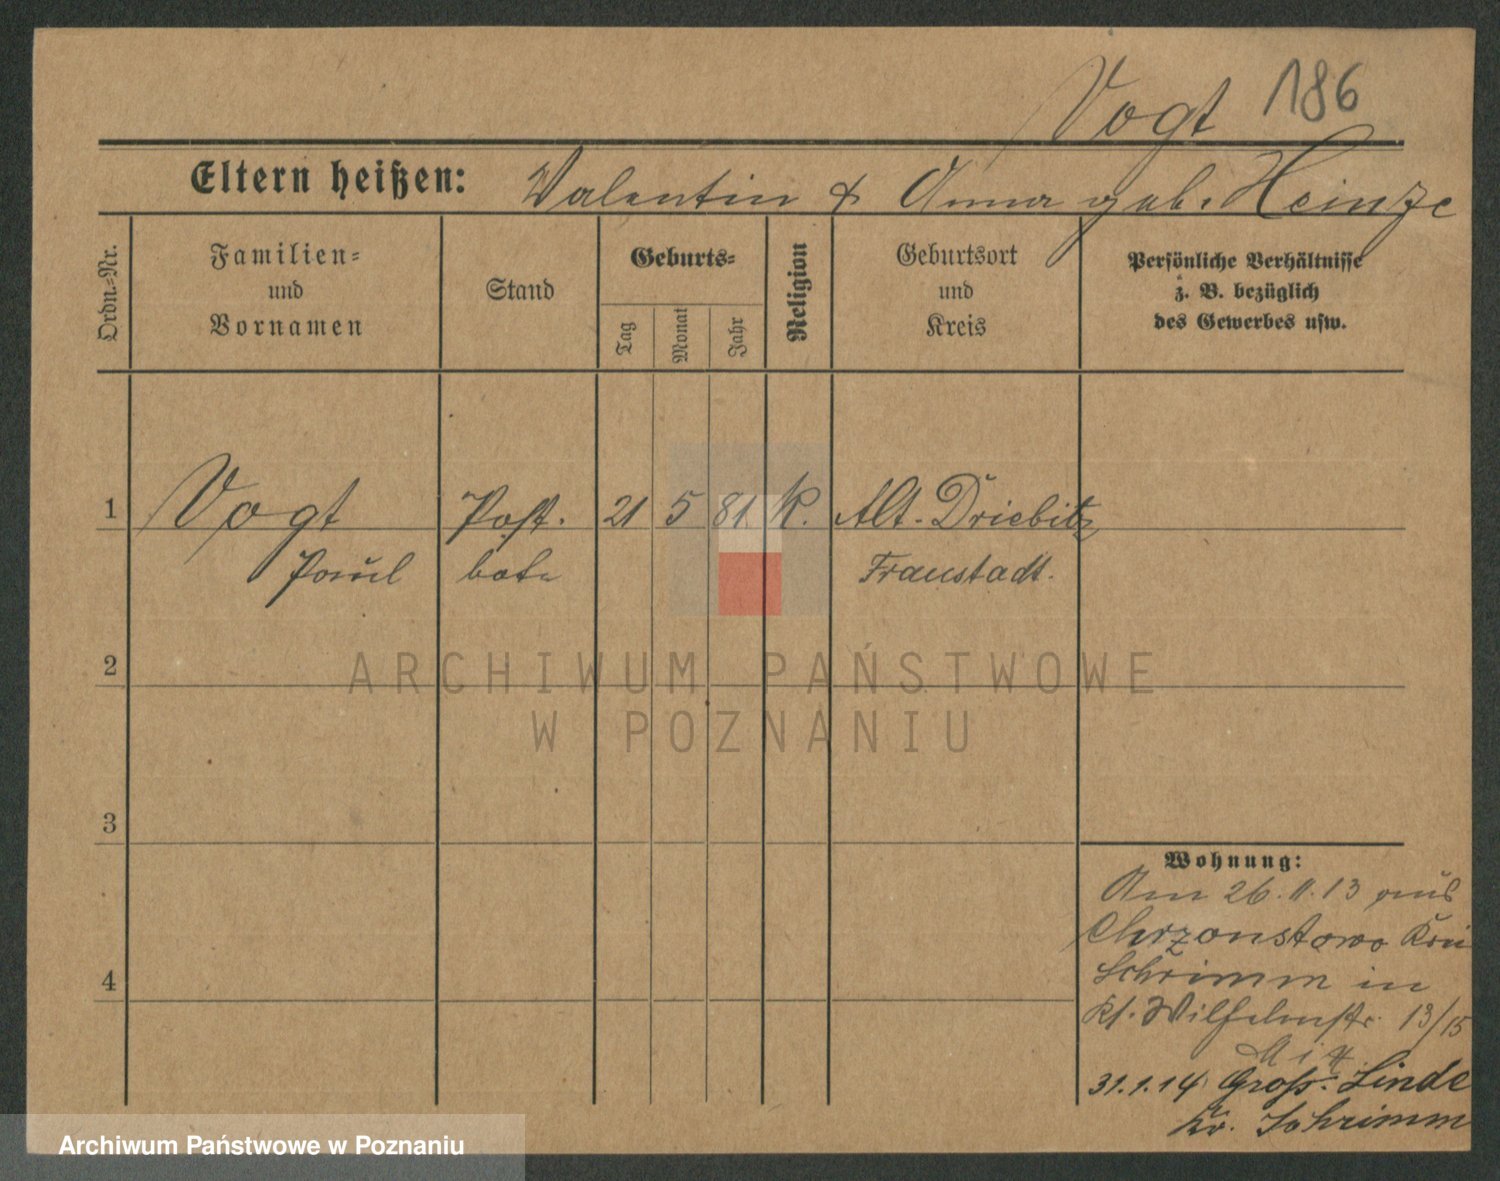 Vogt 186
Eltern heißen: Valentin & Anna geb. Heinze
Ordn.-Nr.
Familien-
und
Vornamen
Stand
Geburts-
Tag
Monat
Jahr
Religion
Geburtsort
und
Kreis
Persönliche Verhältnisse
z. B. bezüglich
des Gewerbes usw.
1 Vogt Post- 21 5 81 K. Alt-Driebitz
Paul bote Fraustadt.
2
ARCHIWUM PAŃSTWOWE
W POZNANIU
3
Wohnung:
Am 26.11.13 aus
Chrzonstowo Krei
4
Schrimm in
Kl. Wilhelmstr. 13/15
31.1.14 Gross-Linde
Kr. Schrimm
Archiwum Państwowe w Poznaniu